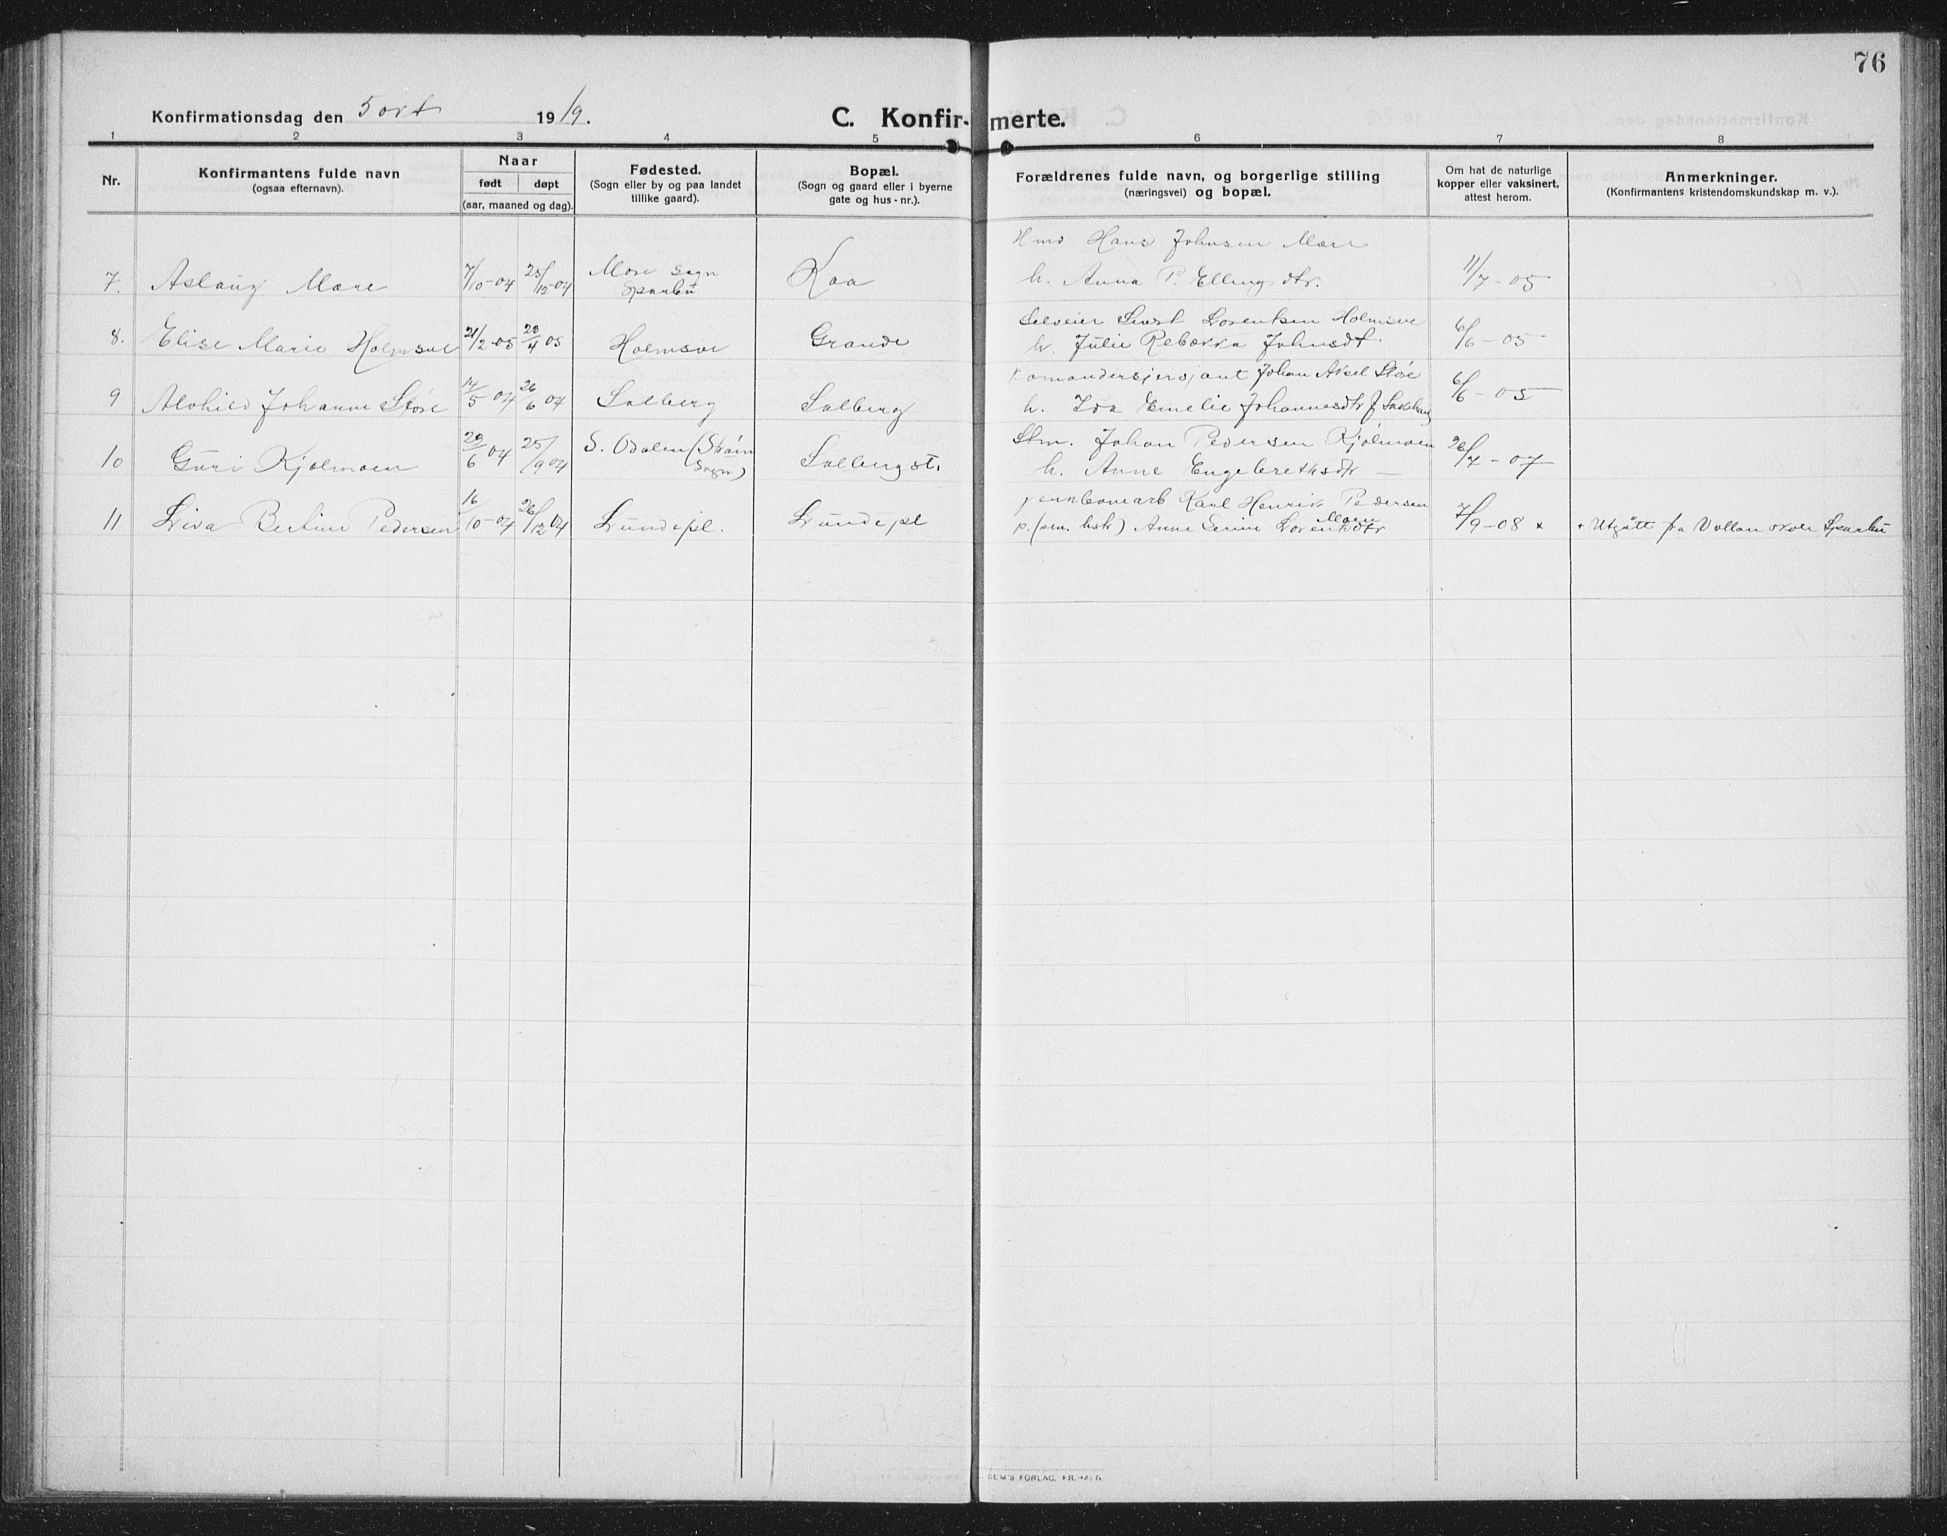 76
Konfirmationsdag den 5 okt 1919.
C. Konfirmerte.
1 2 3 4 5 6 7 8
Nr.
Konfirmantens fulde navn
(ogsaa efternavn).
Naar
født døpt
(aar, maaned og dag).
Fødested.
(Sogn eller by og paa landet
tillike gaard).
Bopæl.
(Sogn og gaard eller i byerne
gate og hus-nr.).
Forældrenes fulde navn, og borgerlige stilling
(næringsvei) og bopæl.
Om hat de naturlige
kopper eller vaksinert,
attest herom.
Anmerkninger.
(Konfirmantens kristendomskundskap m. v.).
Hmd Hans Johnsen Mære
7. Aslaug Mære 7/10-04 25/12-04 Mære sogn Kaa h. Anna P. Ellingsdtr. 11/7-05
Sparbu
Selveier Sivert Lorentsen Holmsve
8. Elise Marie Holmsve 21/2-05 23/4 05 Holmsve Grande h. Julie Rebekka Johnsdt. 6/6-05
Komandersjersjant Johan Aksel Støre
9 Alvhild Johanne Støre 14/5 04 26/6 04 Salberg Salberg h. Ida Emelie Johannesdtr 6/6-05
Stm. Johan Pedersen Kjølmoen
10 Guri Kjølmoen 29/6 04 25/9 04 S. Odalen (Strøm Salberg st. h. Anne Engebrethsdtr 26/7-07
Sogn)
jernbanearb Karl Henrik Pedersen
11 Liva Bertine Pedersen 16/10-04 26/12 04 Lunde pl. Lunde pl p. (sen. hstr) Anne Serine Marie Lorentsdtr 7/9-08 x
+ Utgått fra Vollan skole Sparbu
FORLAG, FR.HALD.